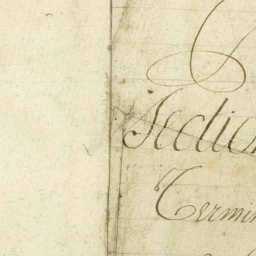 Sectio
Termin